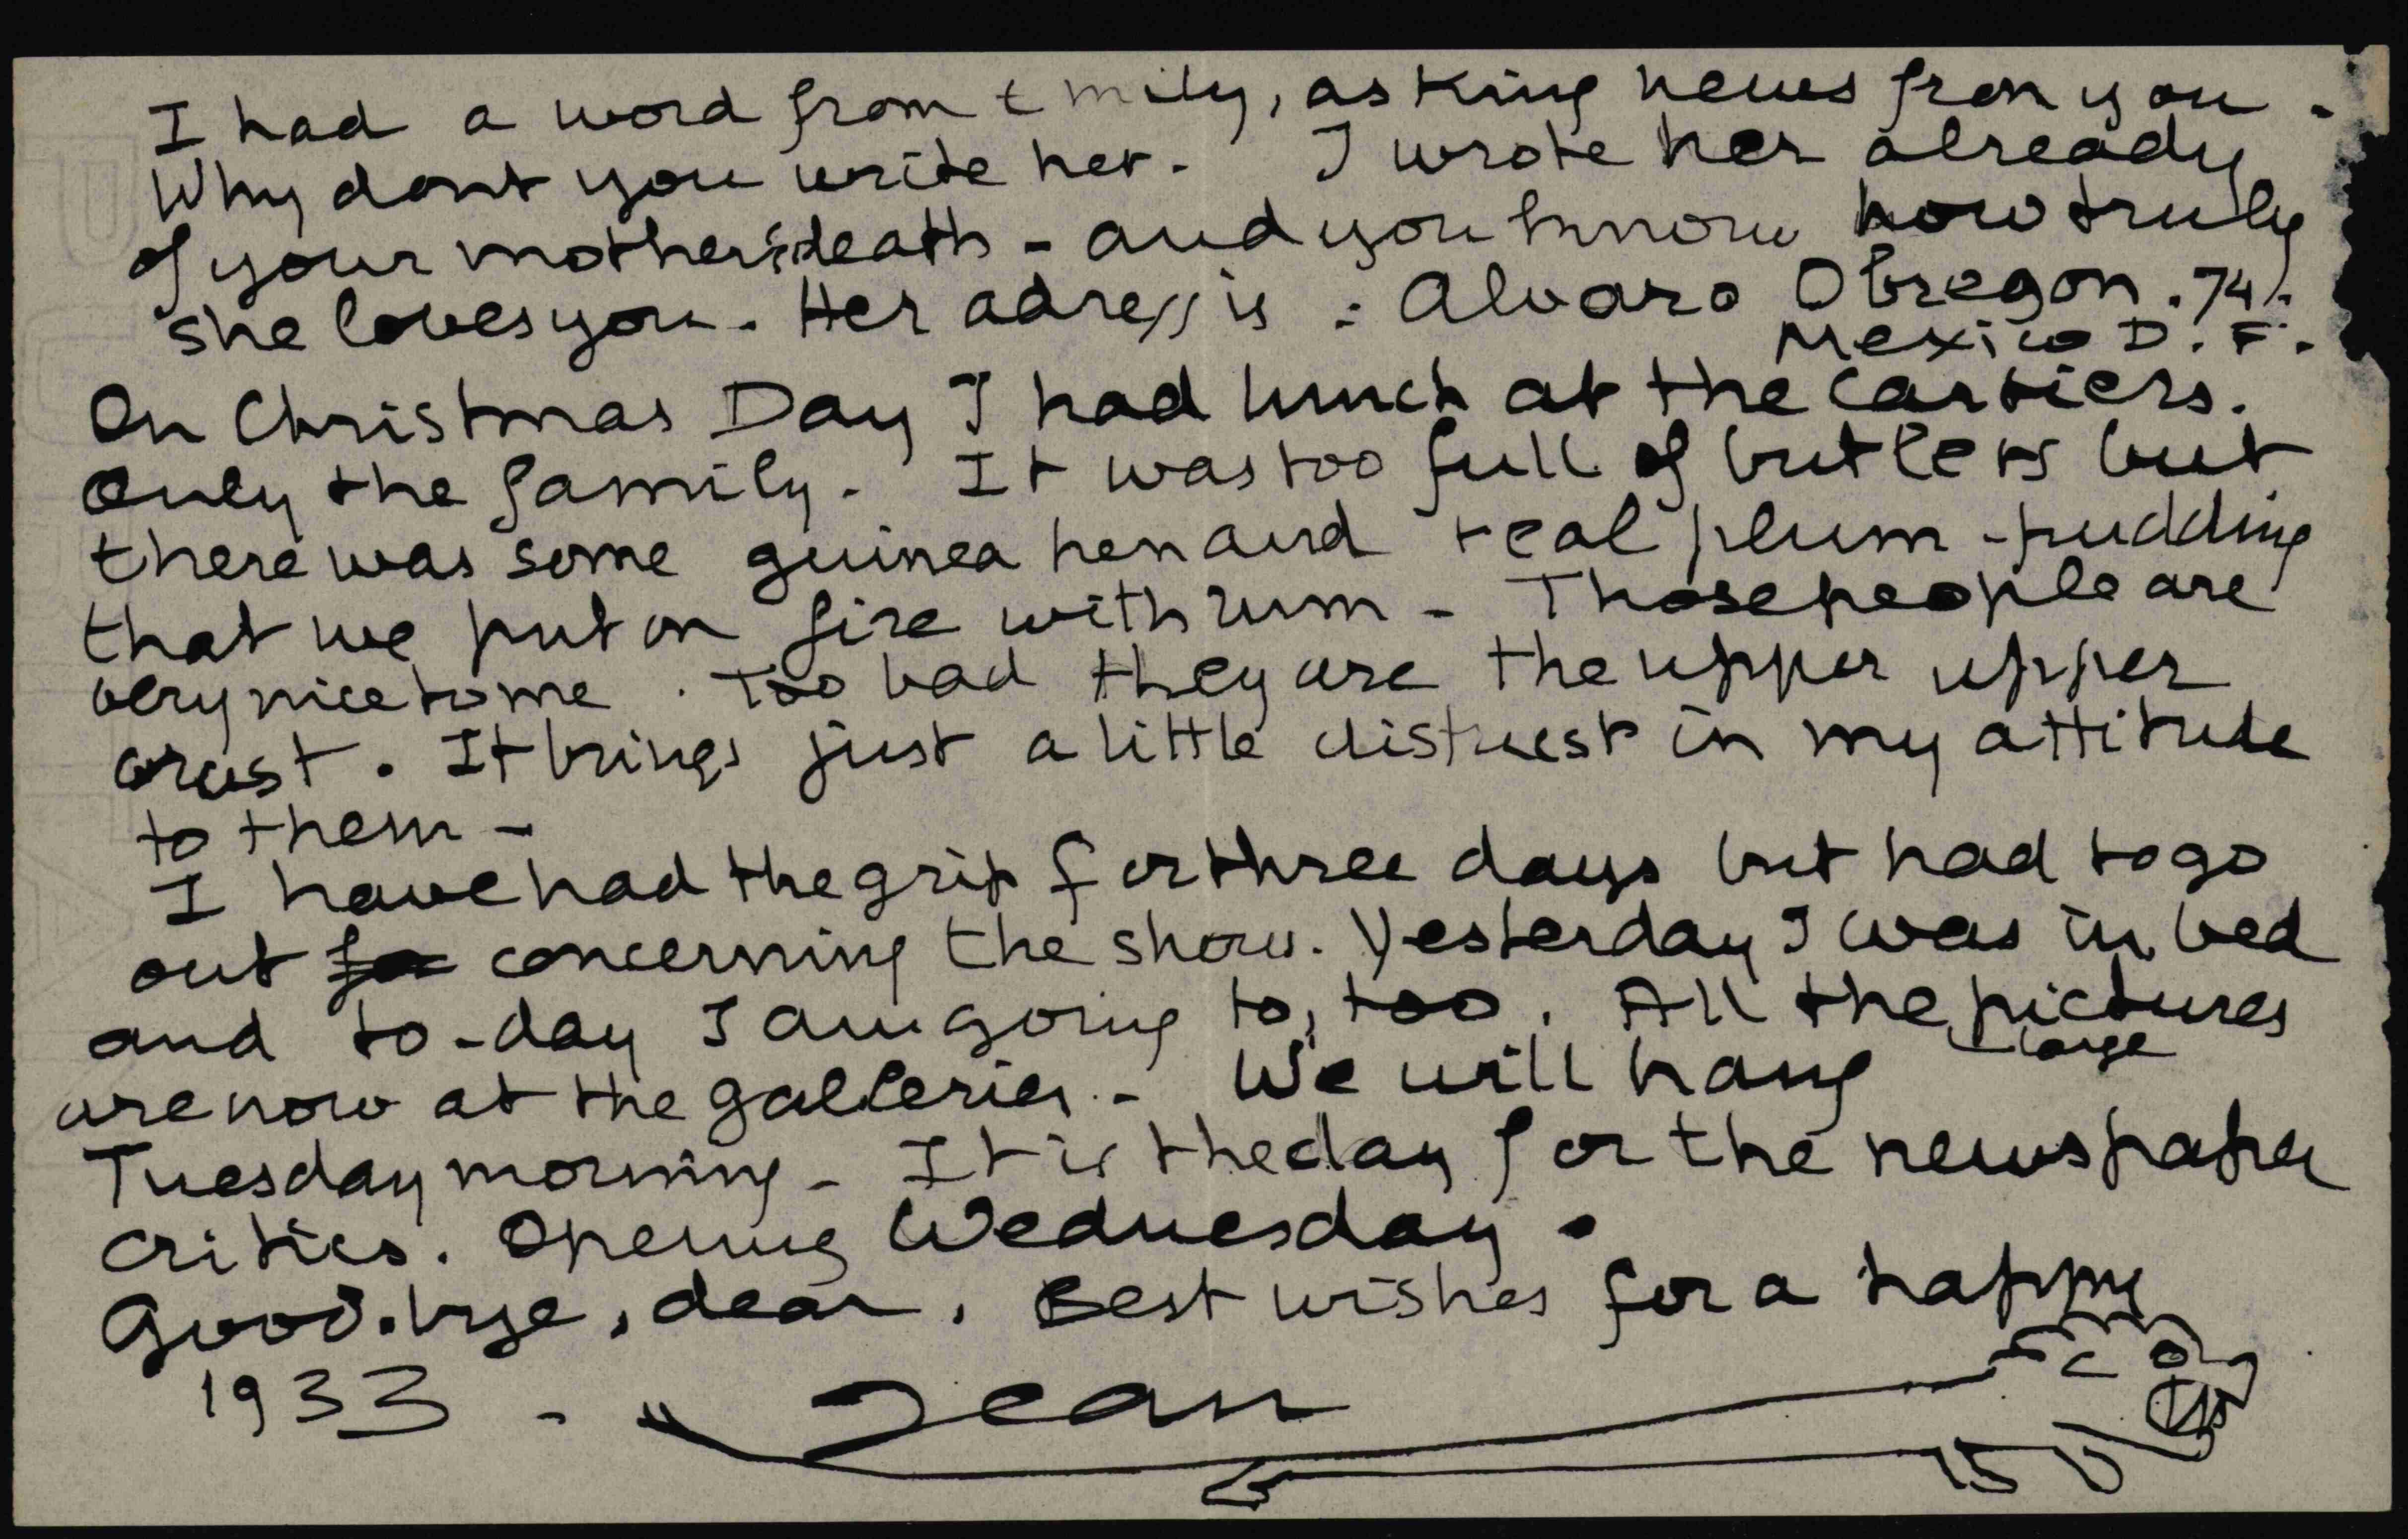 I had a word from Emily, asking news from you.
Why dont you write her. I wrote her already
of your mother's death - and you know how truly
she loves you. Her adress is : Alvaro Obregon. 74.
Mexico D. F.
On Christmas Day I had lunch at the Cartiers.
Only the family. It was too full of butlers but
there was some guinea hen and real plum-pudding
that we put on fire with rum - Those people are
very nice to me. Too bad they are the upper upper
crust. It brings just a little distrust in my attitude
to them -
I have had the grip for three days but had to go
out for concerning the show. Yesterday I was in bed
and to-day I am going to, too. All the large pictures
are now at the galleries. - We will hang
Tuesday morning - It is the day for the newspaper
critics. Opening Wednesday.
Good.bye, dear, Best wishes for a happy
1933 - Jean